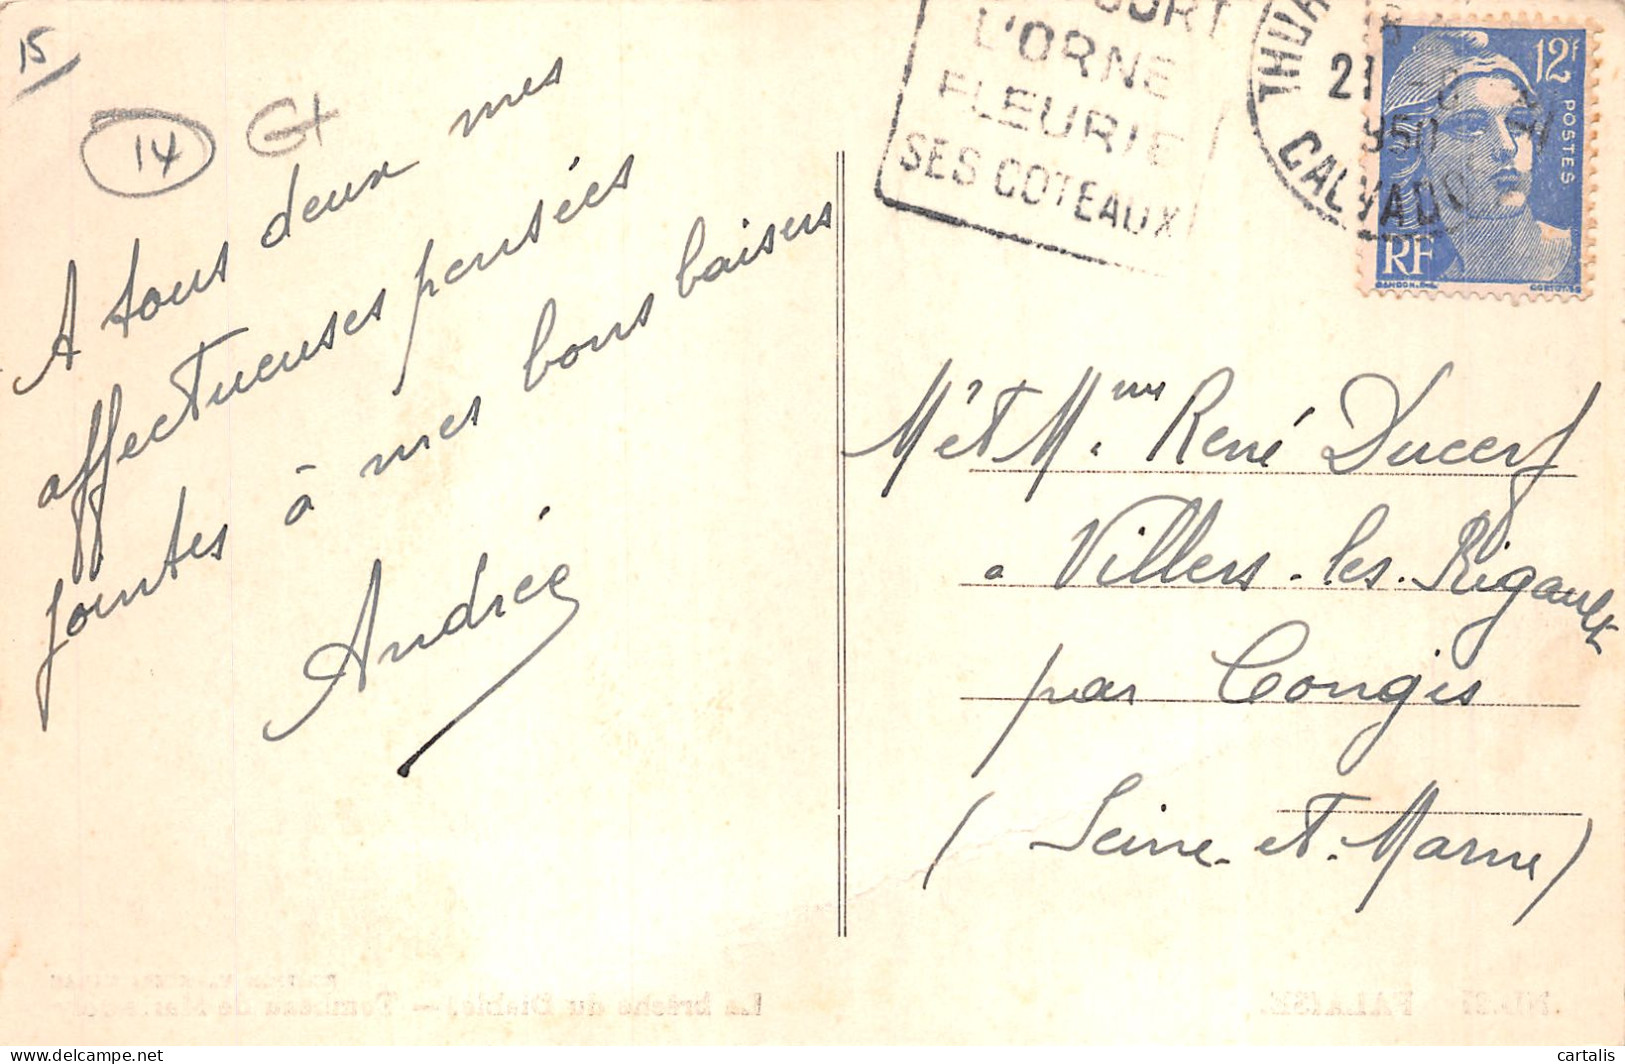 15
14
A tous deux mes
affectueuses pensées
jointes à mes bons baisers
Andrée
L'ORNE
FLEURIE
SES COTEAUX
THUR
21
950
CALVADO
12f
POSTES
RF
Mr et Mme René Ducerf
à Villers-les-Rigault
par Congis
(Seine-et-Marne)
La brèche du Diable — Tombeau de
FALAISE
cartalis